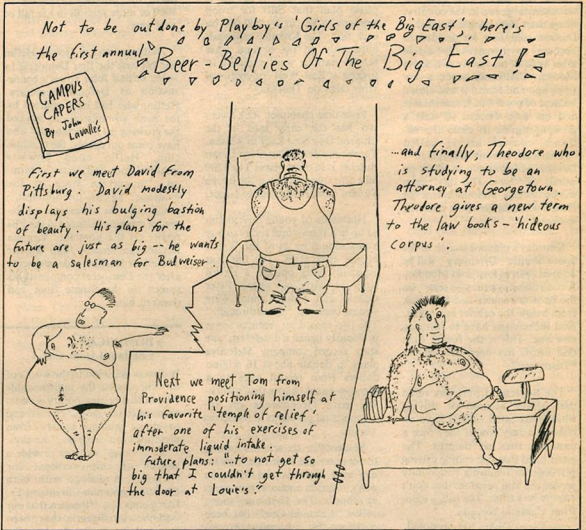 Not to be outdone by Playboy's 'Girls of the Big East', here's
the first annual
Beer-Bellies Of The Big East!
CAMPUS
CAPERS
By John
Lavallée
First we meet David from
Pittsburg. David modestly
displays his bulging bastion
of beauty. His plans for the
future are just as big -- he wants
to be a salesman for Budweiser.
Next we meet Tom from
Providence positioning himself at
his favorite 'temple of relief'
after one of his exercises of
immoderate liquid intake.
Future plans: "...to not get so
big that I couldn't get through
the door at Louie's."
...and finally, Theodore who
is studying to be an
attorney at Georgetown.
Theodore gives a new term
to the law books - 'hideous
corpus'.